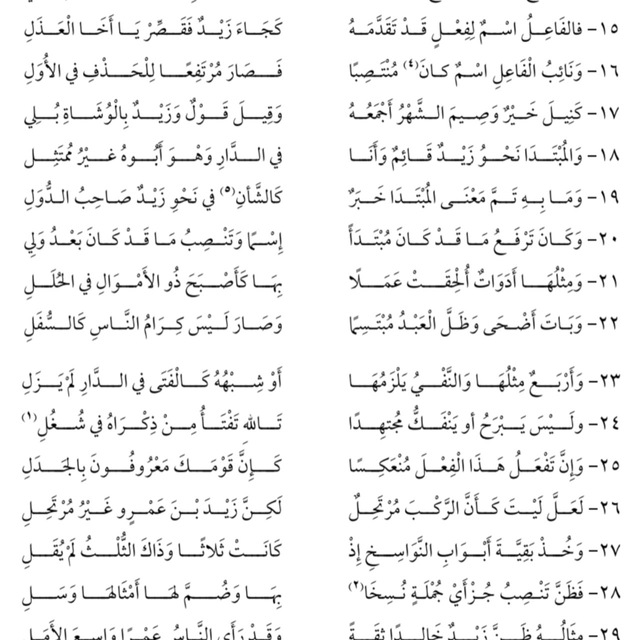 ١٥- فالفَاعِلُ اسْمٌ لِفِعْلٍ قَدْ تَقَدَّمَهُ كَجَاءَ زَيْدٌ فَقَصِّرْ يَا أَخَا الْعَذَلِ
١٦- وَنَائِبُ الْفَاعِلِ اسْمٌ كانَ(٤) مُنْتَصِبًا فَصَارَ مُرْتَفِعًا لِلْحَذْفِ في الأُوَلِ
١٧- كَنِيلَ خَيْرٌ وَصِيمَ الشَّهْرُ أَجْمَعُهُ وَقِيلَ قَوْلٌ وَزَيْدٌ بِالْوُشَاةِ بُلِي
١٨- وَالْمُبْتَدَا نَحْوُ زَيْدٌ قَائِمٌ وَأَنَا في الدَّارِ وَهْوَ أَبُوهُ غَيْرُ مُمْتَثِلِ
١٩- وَمَا بِهِ تَمَّ مَعْنَى الْمُبْتَدَا خَبَرٌ كَالشَّأنِ(٥) في نَحْوِ زَيْدٌ صَاحِبُ الدُّوَلِ
٢٠- وَكَانَ تَرْفَعُ مَا قَدْ كَانَ مُبْتَدَأً إِسْمًا وَتَنْصِبُ مَا قَدْ كَانَ بَعْدُ وَلِي
٢١- وَمِثْلُهَا أَدَوَاتٌ أُلْحِقَتْ عَمَلًا بِهَا كَأَصْبَحَ ذُو الأَمْوَالِ في الحُلَلِ
٢٢- وَبَاتَ أَضْحَى وَظَلَّ الْعَبْدُ مُبْتَسِمًا وَصَارَ لَيْسَ كِرَامُ النَّاسِ كَالسَّفَلِ
٢٣- وَأَرْبَعٌ مِثْلُهَا وَالنَّفْيُ يَلْزَمُهَا أَوْ شِبْهُهُ كَالْفَتَى في الدَّارِ لَمْ يَزَلِ
٢٤- ولَيْسَ يَبْرَحُ أو يَنْفَكُّ مُجتهِدًا تَاللهِ تَفْتَأُ مِنْ ذِكْرَاهُ في شُغُلِ(١)
٢٥- وَإِنَّ تَفْعَلُ هَذَا الْفِعْلَ مُنْعَكِسًا كَإِنَّ قَوْمَكَ مَعْرُوفُونَ بِالجَدَلِ
٢٦- لَعَلَّ لَيْتَ كَأَنَّ الرَّكْبَ مُرْتَحِلٌ لَكِنَّ زَيْدَ بْنَ عَمْرٍو غَيْرُ مُرْتَحِلِ
٢٧- وَخُذْ بَقِيَّةَ أَبْوَابِ النَّوَاسِخِ إِذْ كَانَتْ ثَلَاثًا وَذَاكَ الثُّلْثُ لَمْ يُقَلِ
٢٨- فَظَنَّ تَنْصِبُ جُزْأَيْ جُمْلَةٍ نُسِخَا(٢) بِهَا وَضُمَّ لهَا أَمْثَالهَا وَسَلِ
٢٩- مِثَالُهُ ظَنَّ زَيْدٌ خَالِدًا ثِقَةً وَقَدْ رَأَى النَّاسُ عَمْرًا وَاسِعَ الأَمَلِ